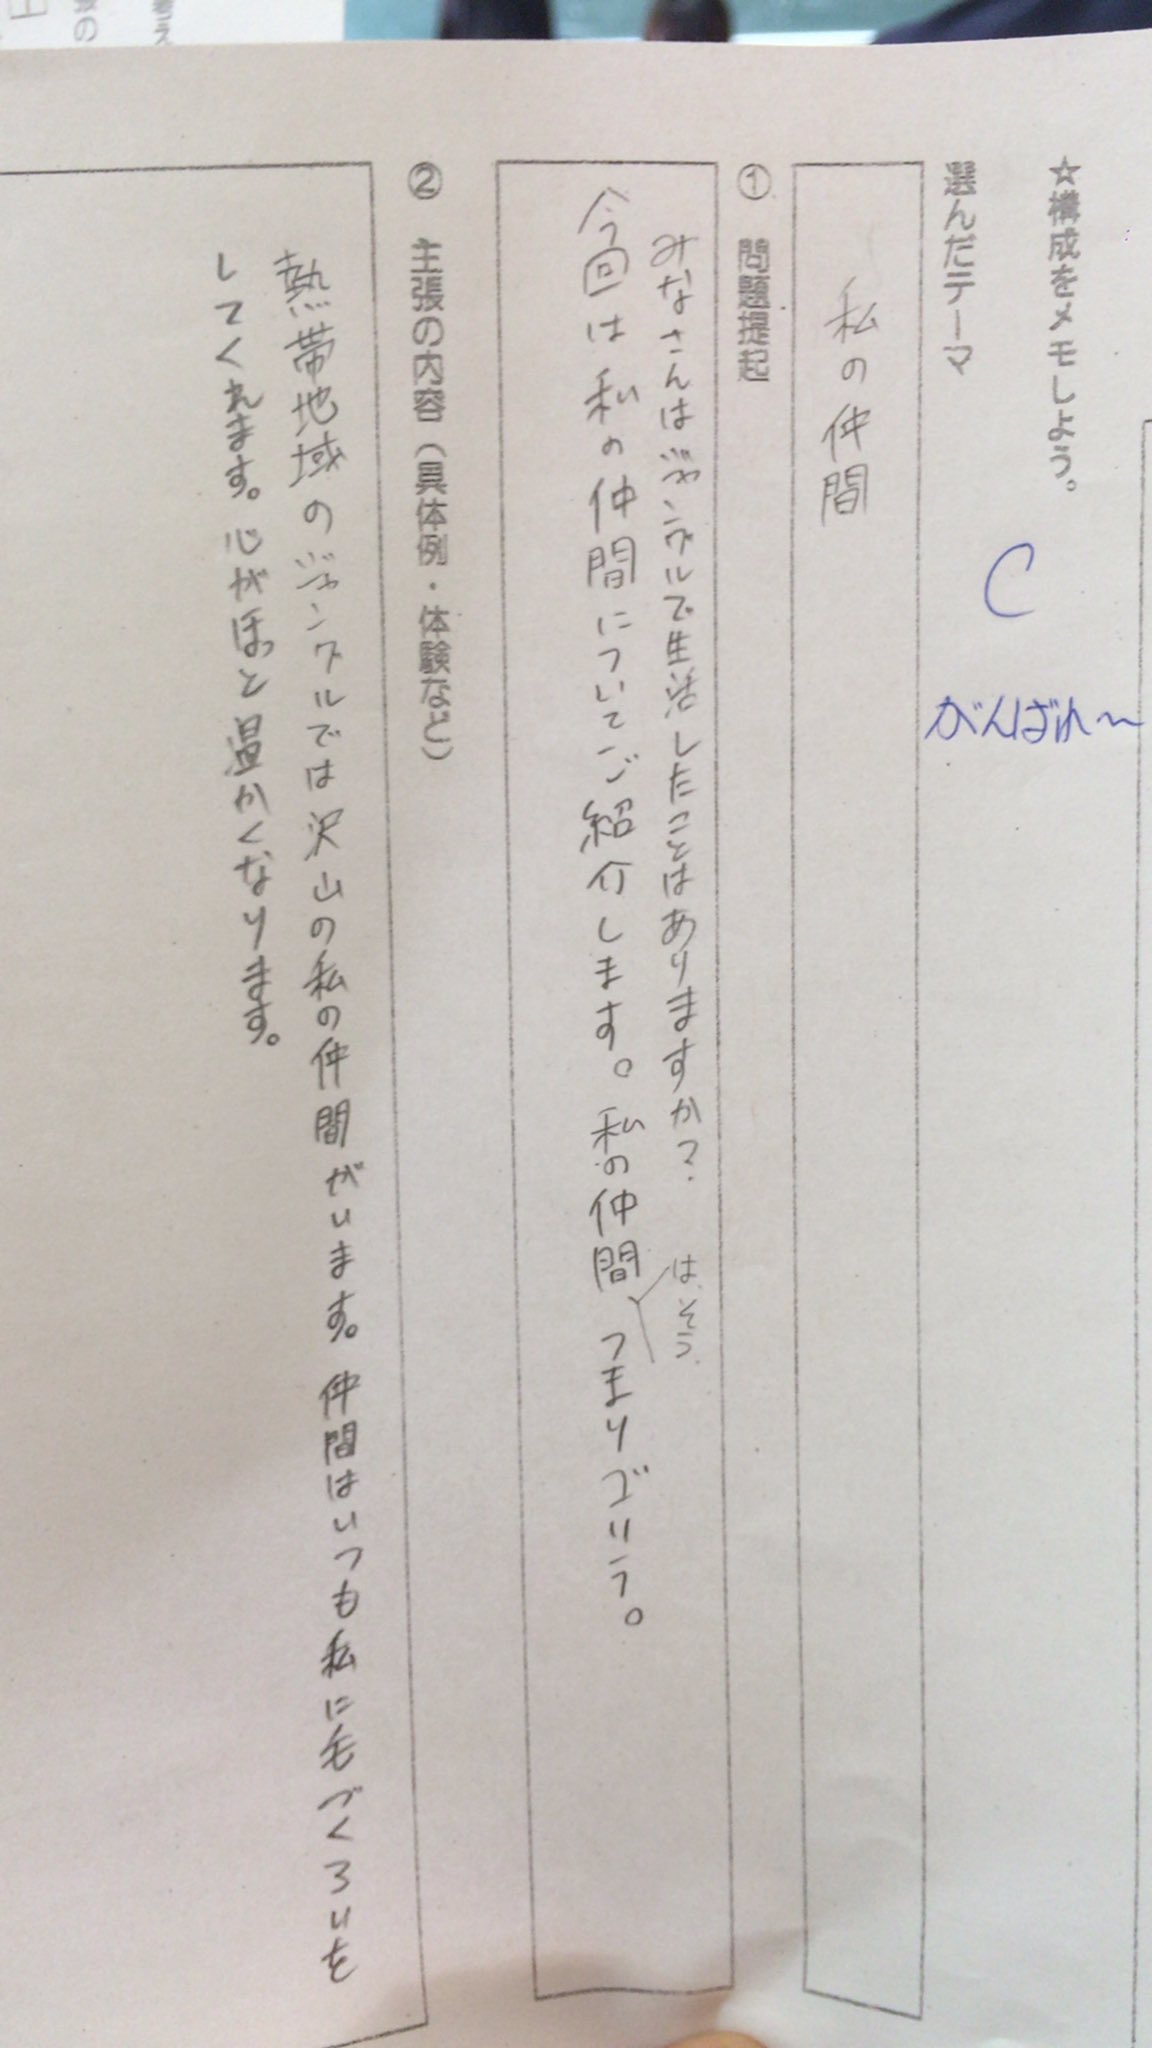 ☆構成をメモしよう。
C
がんばれ〜
選んだテーマ
私の仲間
① 問題提起
みなさんはジャングルで生活したことはありますか?
はそう
今回は私の仲間についてご紹介します。私の仲間つまりゴリラ。
② 主張の内容(具体例・体験など)
熱帯地域のジャングルでは沢山の私の仲間がいます。仲間はいつも私に毛づくろいを
してくれます。心がほっと温かくなります。